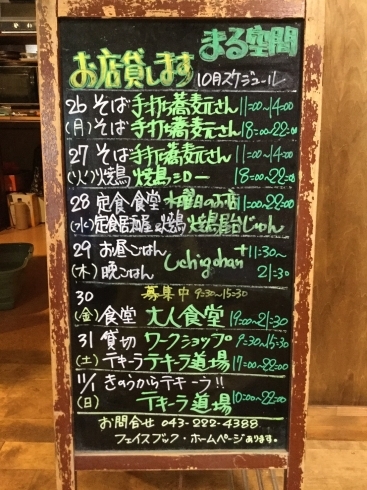 まる空間
お店貸します 10月スケジュール
26 そば 手打ち蕎麦元さん 11:00~14:00
(月) そば 手打ち蕎麦元さん 18:00~22:00
27 そば 手打ち蕎麦元さん 11:00~14:00
(火) 焼鳥 焼鳥シロー 18:00~22:00
28 定食・食堂 水曜日のお店 11:00~22:00
(水) 定食居酒屋&焼鳥 焼鳥屋台じゅん
29 お昼ごはん uchigohan+ 11:30~
(木) 晩ごはん 21:30
30 募集中 9:30~15:30
(金) 食堂 大人食堂 19:00~21:30
31 貸切 ワークショップ 9:30~15:30
(土) テキーラ テキーラ道場 17:00~22:00
11/1 きのうからテキーラ!!
(日) テキーラ道場 10:00~22:00
お問合せ 043-222-4388
フェイスブック・ホームページあります。